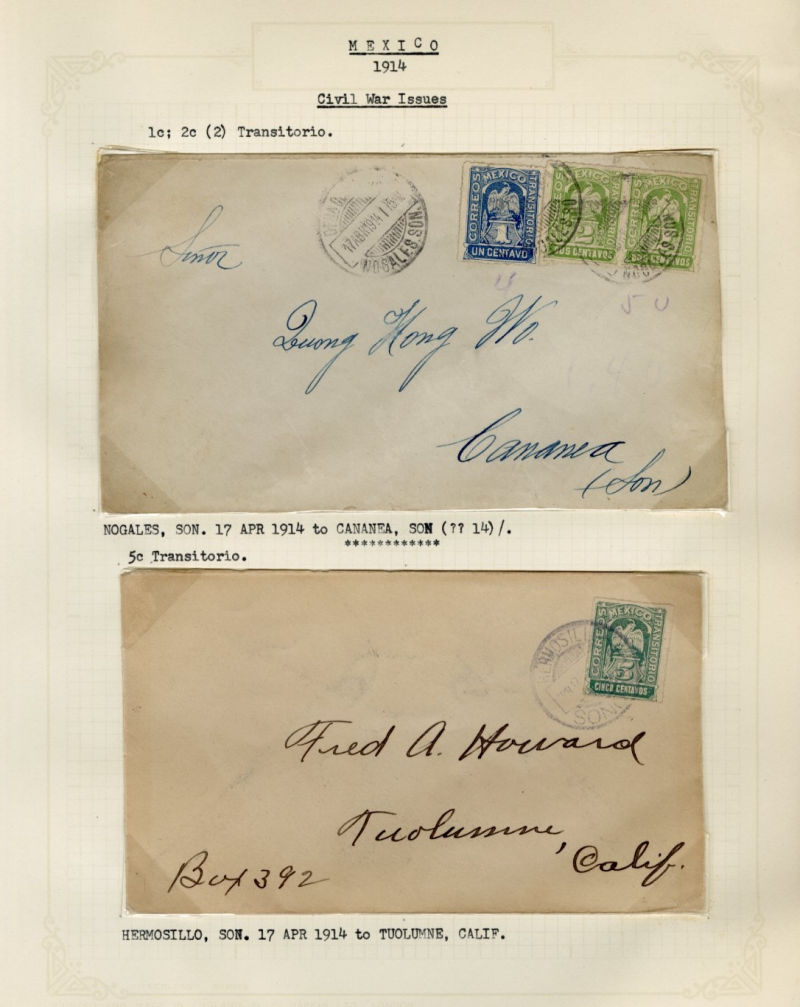 MEXICO
1914
Civil War Issues
1c; 2c (2) Transitorio.
CORREOS MEXICO TRANSITORIO
1
UN CENTAVO
CORREOS MEXICO TRANSITORIO
2
DOS CENTAVOS
CORREOS MEXICO TRANSITORIO
DOS CENTAVOS
17 ABR 1914
NOGALES, SON.
Señor
Quong Hong Wo.
Cananea
(Son)
50
NOGALES, SON. 17 APR 1914 to CANANEA, SON (?? 14)/.
************
5c Transitorio.
CORREOS MEXICO TRANSITORIO
5
CINCO CENTAVOS
HERMOSILLO
SON
Fred A. Howard
Tuolumne,
Calif.
Box 392
HERMOSILLO, SON. 17 APR 1914 to TUOLUMNE, CALIF.